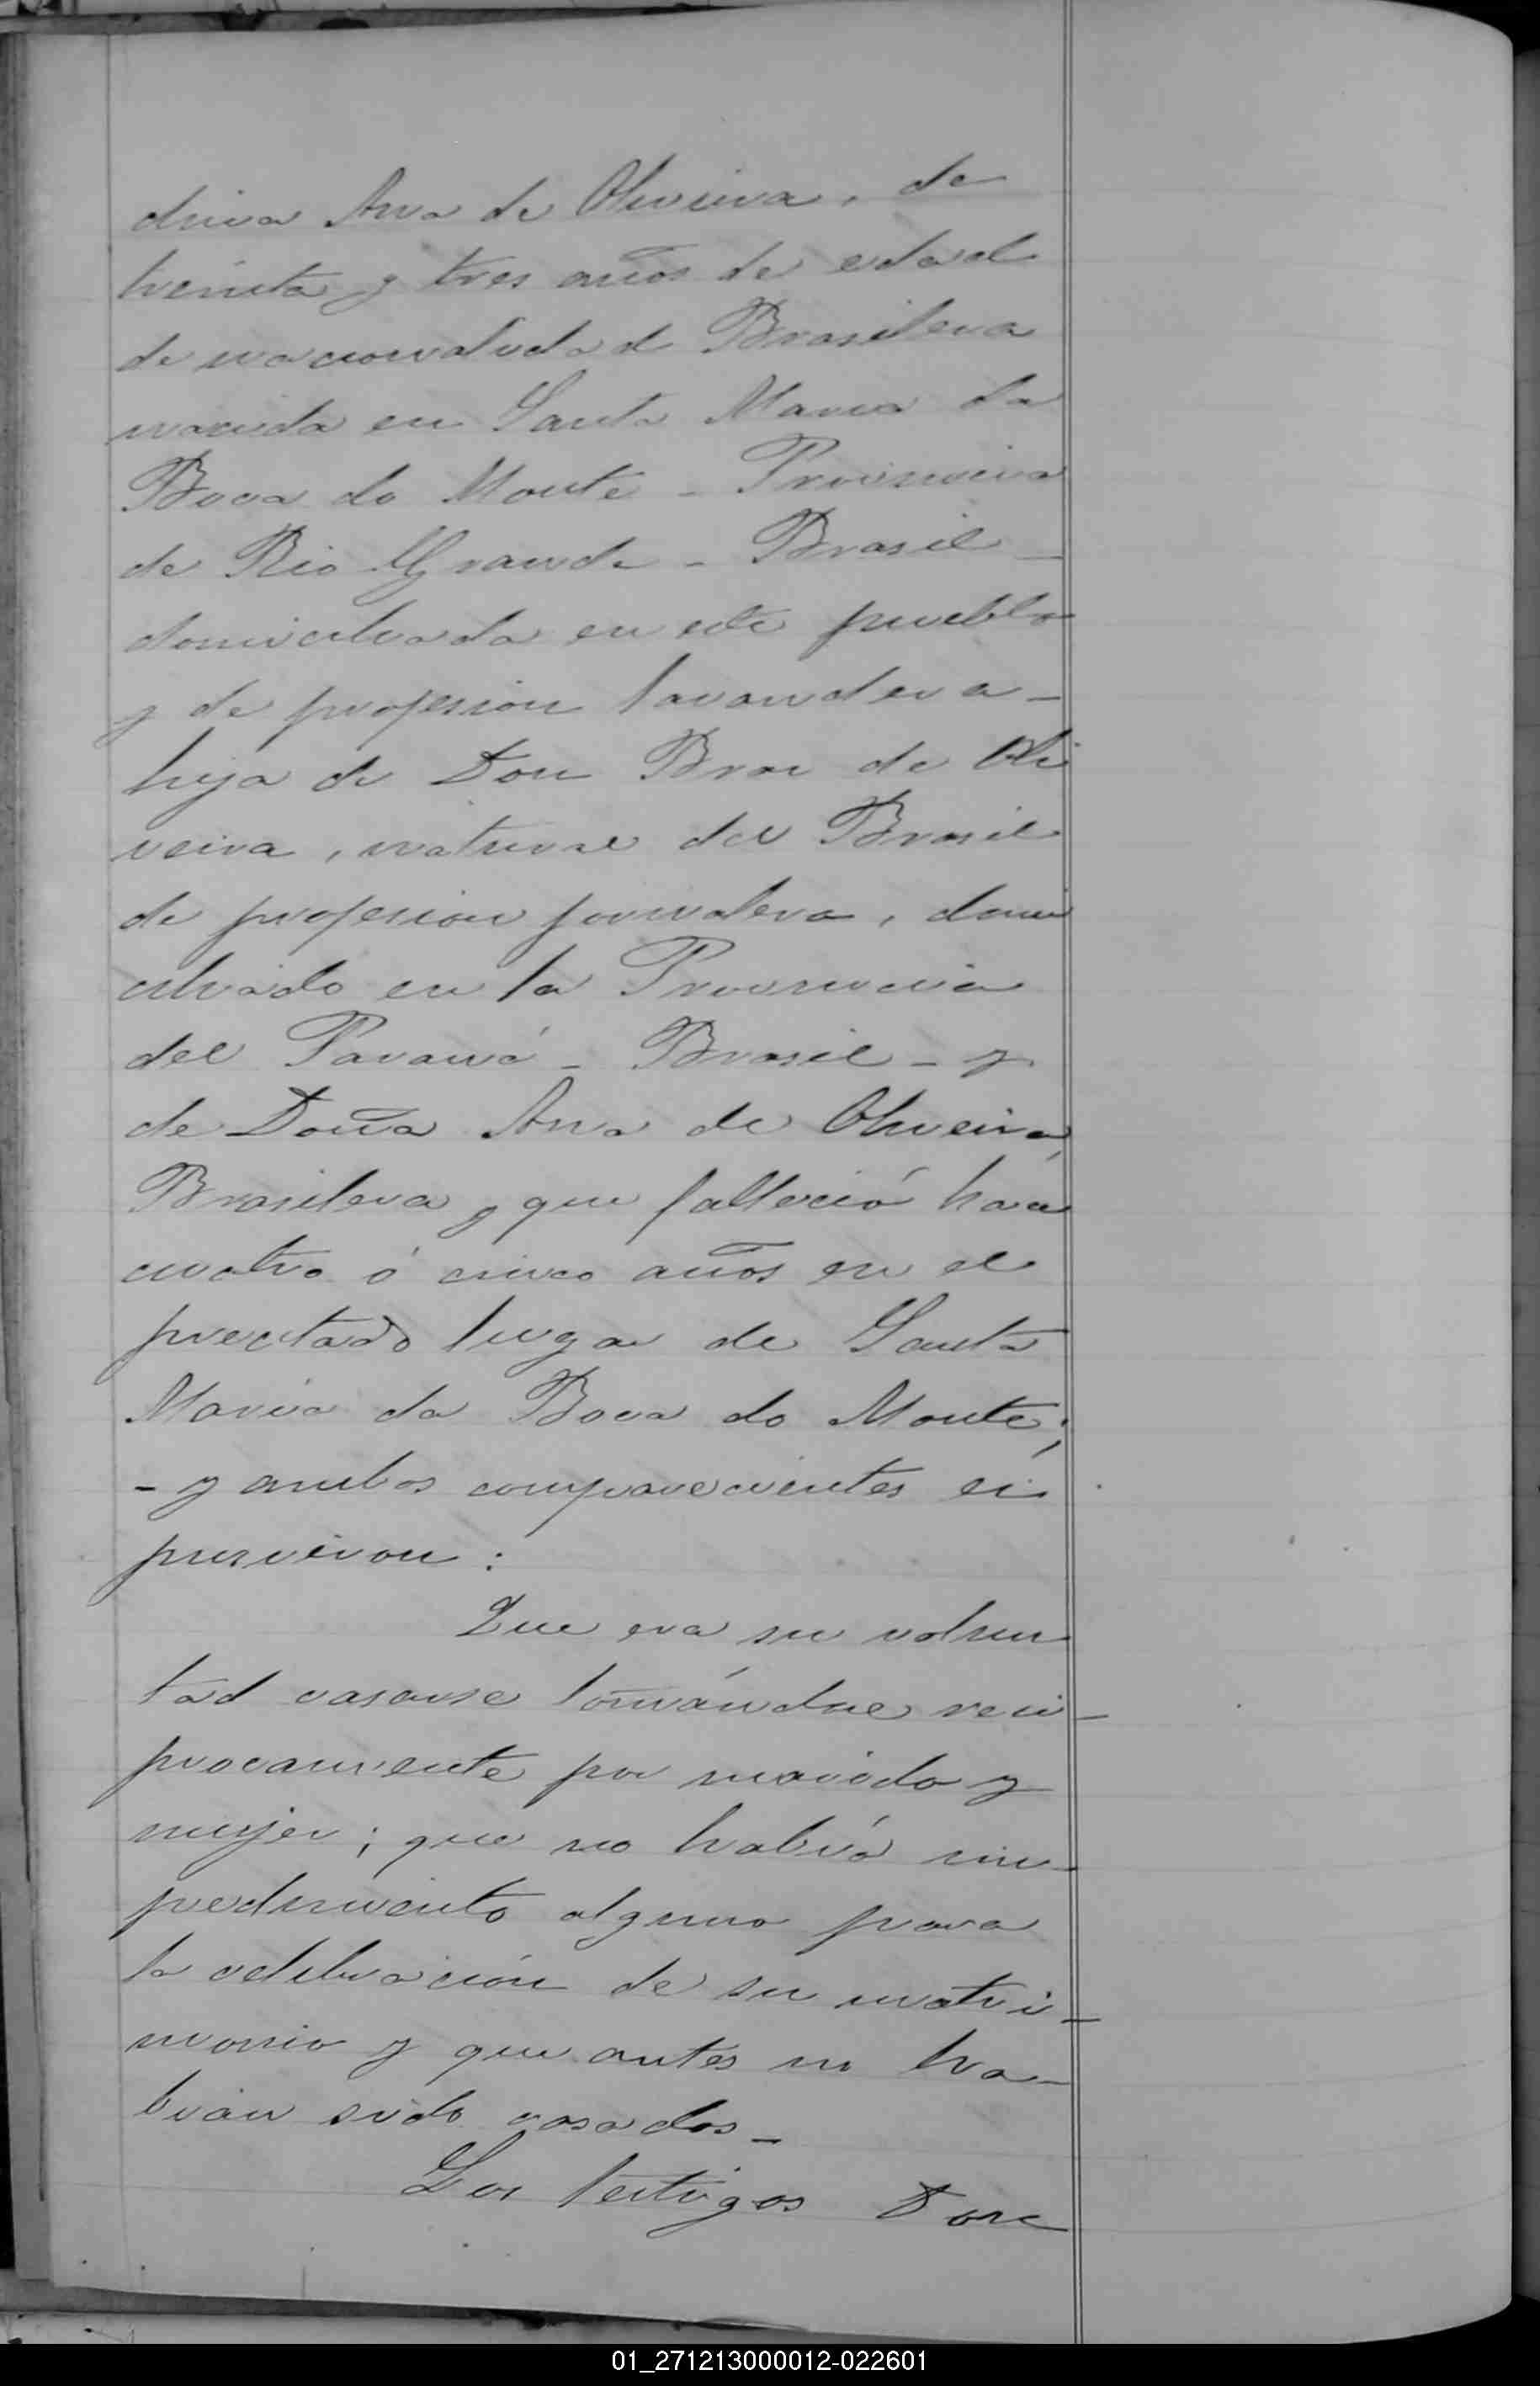 drina Ana de Oliveira, de
treinta y tres años de edad
de nacionalidad Brasilera
nacida en Santa Maria da
Boca do Monte - Provincia
de Rio Grande - Brasil -
domiciliada en este pueblo
y de profesion lavandera -
hija de Don Bras de Oli
veira, natural del Brasil
de profesion jornalero, domi
ciliado en la Provincia
del Paraná - Brasil - y
de Doña Ana de Oliveira,
Brasilera y que falleció hace
cuatro ó cinco años en el
precitado lugar de Santa
Maria da Boca do Monte;
- y ambos comparecientes ex
pusieron:
Que era su volun
tad casarse tomándose reci-
procamente por marido y
mujer; que no había im-
pedimento alguno para
la celebración de su matri-
monio y que antes no ha-
bian sido casados -
Los testigos Don
01_271213000012-022601